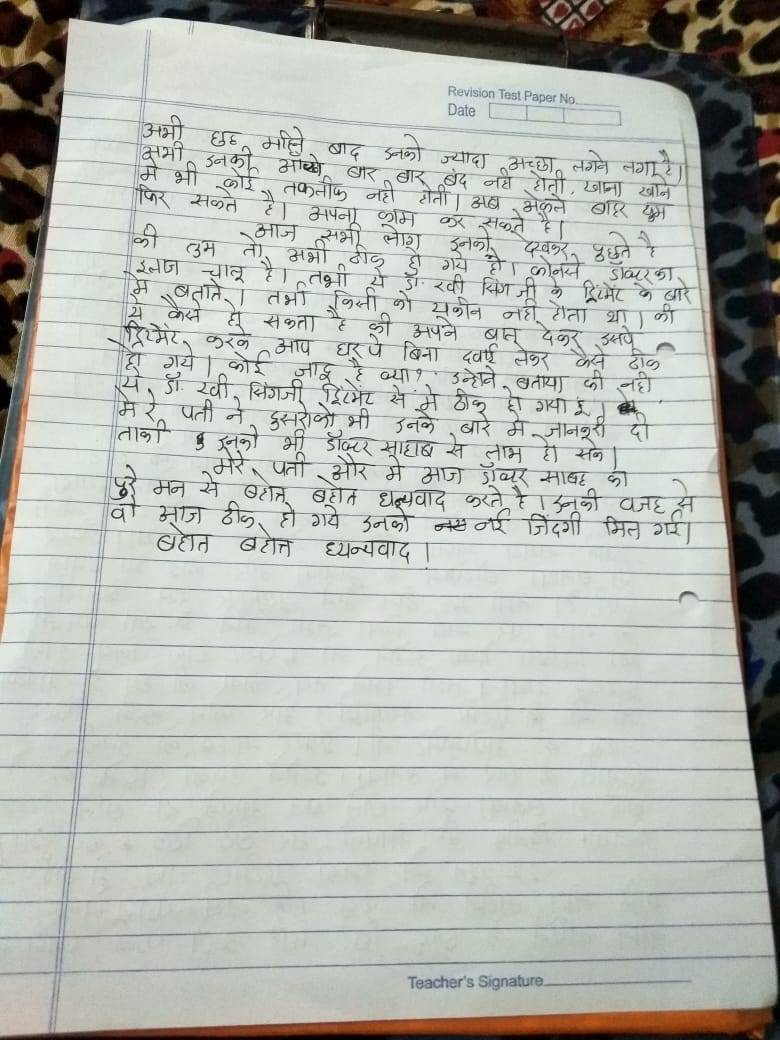 Revision Test Paper No.
Date
अभी छह महिने बाद इनको ज्यादा अच्छा लगने लगा है।
अभी इनकी आखे बार बार बंद नही होती, खाना खाने
मे भी कोई तकलीफ नही होती। अब अकेले बाहर घुम
फिर सकते है। अपना काम कर सकते है।
आज सभी लोग इनको देखकर पुछते है
की तुम तो अभी ठीक हो गये हो। कोनसे डॉक्टर का
इलाज चालू है। तभी ये डॉ. रवी सिंग जी के ट्रिटमेंट के बारे
मे बताते। तभी किसी को यकीन नही होता था। की
ये कैसे हो सकता है की अपने बाल देकर उसपे
ट्रिटमेंट करके आप घर पे बिना दवाई लेकर कैसे ठीक
हो गये। कोई जादू है क्या? उन्होने बताया की नही
ये डॉ. रवी सिंगजी ट्रिटमेंट से मे ठीक हो गया हूं,
मेरे पती ने दुसरोको भी इनके बारे मे जानकारी दी
ताकी इनको भी डॉक्टर साहाब से लाभ हो सके।
मेरे पती और मे आज डॉक्टर साबह का
पुरे मन से बहोत बहोत धन्यवाद करते है। इनकी वजह से
वो आज ठीक हो गये इनको नई जिंदगी मिल गई।
बहोत बहोत ध्यन्यवाद।
Teacher's Signature